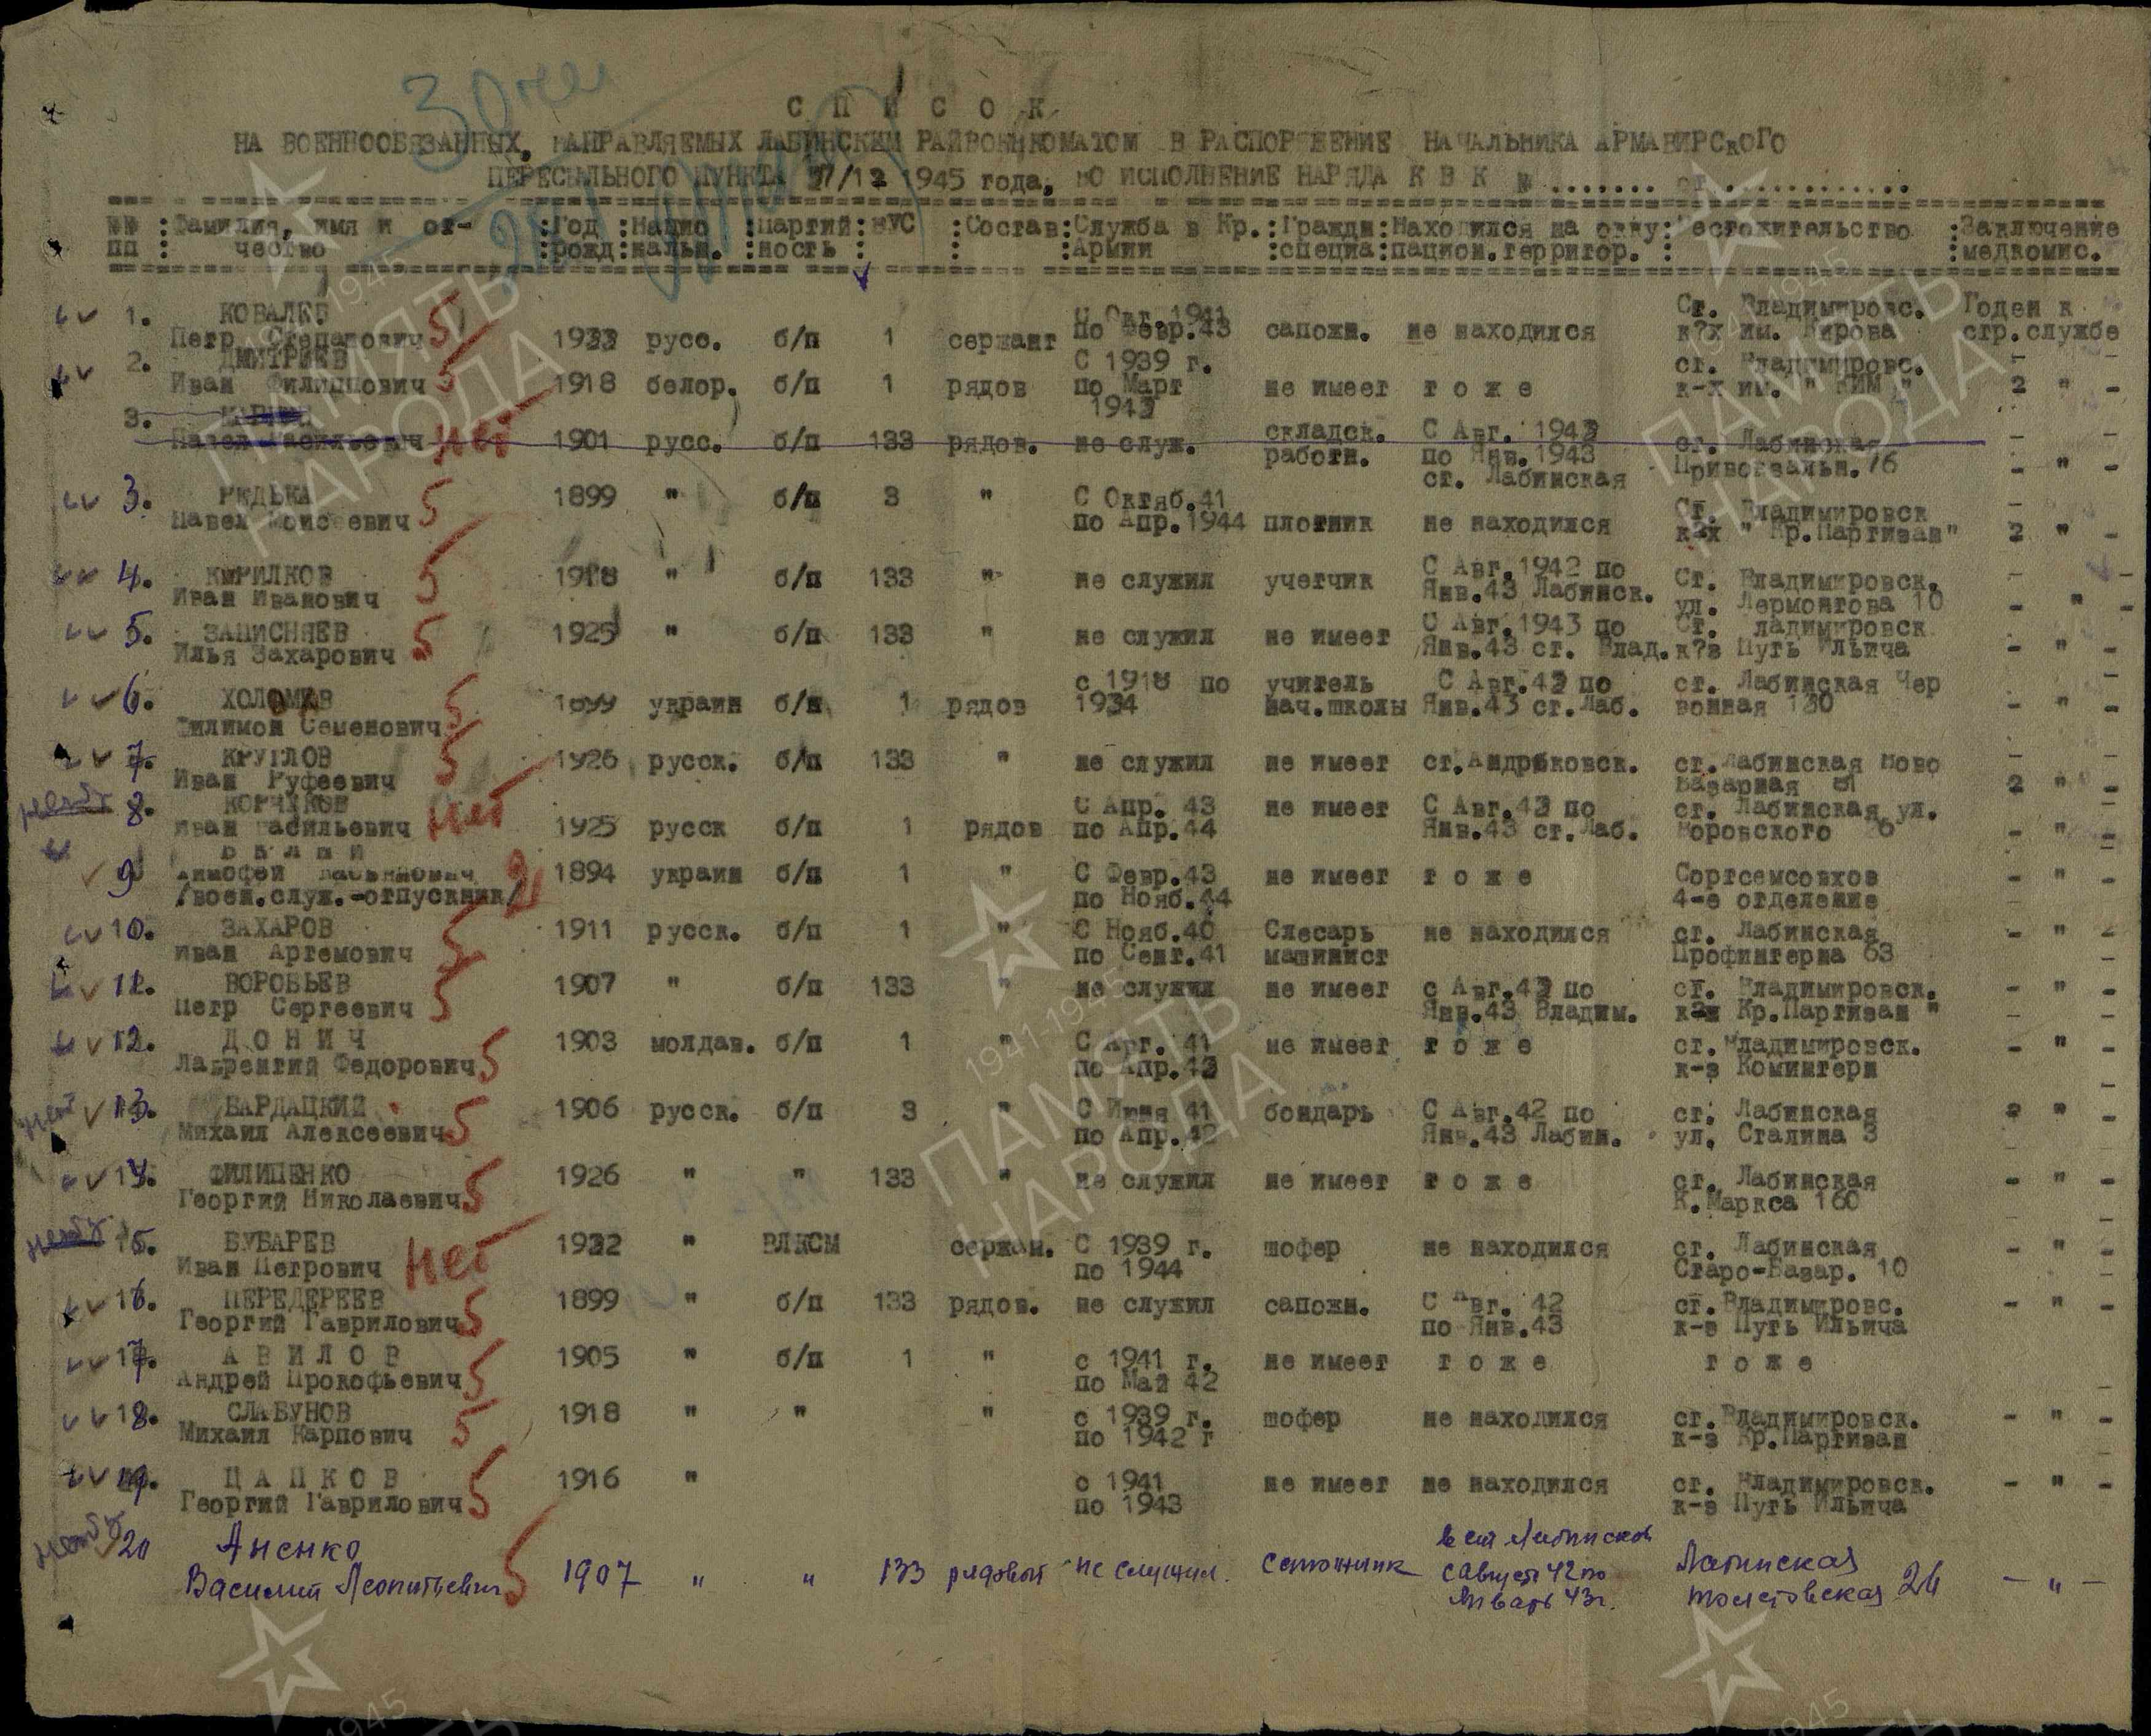 30 чел
С П И С О К
НА ВОЕННООБЯЗАННЫХ, НАПРАВЛЯЕМЫХ ЛАБИНСКИМ РАЙВОЕНКОМАТОМ В РАСПОРЯЖЕНИЕ НАЧАЛЬНИКА АРМАВИРСКОГО
ПЕРЕСЫЛЬНОГО ПУНКТА /12 1945 года, ВО ИСПОЛНЕНИЕ НАРЯДА К В К № ....... от ............
№№ : Фамилия, имя и от- :Год :Нацио :партий: ВУС :Состав:Служба в Кр.:Гражда:Находился на окку: Местожительство :Заключение
пп : чество :рожд:нальн. :ность : : :Армии :специа:пацион.территор. : :медкомис.
1. КОВАЛЕВ С Окт. 1941 Ст. Владимировс. Годен к
Петр Степанович 5 1923 русс. б/п 1 сержант по Февр.43 сапожн. не находился к?х им. Кирова стр.службе
2. ДМИТРИЕВ С 1939 г. ст. Владимировс.
Иван Филиппович 5 1918 белор. б/п 1 рядов по Март не имеет т о ж е к-х им. " КИМ " 2 " -
1942
3. складск. С Авг. 1942 ст. Лабинская
Павел Васильевич нет 1901 русс. б/п 133 рядов. не служ. работн. по Янв.1943 Привокзальн. 76 - " -
ст. Лабинская
3. РЕДЬКА 5 1899 " б/п 3 " С Октяб.41 Ст. Владимировск
Павел Моисеевич по Апр.1944 плотник не находился к-х " Кр.Партизан" 2 " -
4. КИРИЛКОВ 5 1918 " б/п 133 " не служил учетчик С Авг.1942 по Ст. Владимировск.
Иван Иванович Янв.43 Лабинск. ул. Лермонтова 10 - " -
5. ЗАПИСНЯЕВ 5 1925 " б/п 133 " не служил не имеет С Авг.1943 по Ст. ладимировск
Илья Захарович Янв.43 ст. Влад. к?з Путь Ильича - " -
6. ХОЛОМ 5 1899 украин б/п 1 рядов с 1918 по учитель С Авг.42 по ст. Лабинская Чер
Филимон Семенович 1934 нач.школы Янв.43 ст.Лаб. вонная 130 - " -
7. КРУГЛОВ 5 1926 русск. б/п 133 " не служил не имеет ст.Андрюковск. ст.Лабинская Ново
Иван Руфеевич Базарная 81 2 " -
8. нет С Апр. 43 не имеет С Авг.42 по ст. Лабинская ул.
Иван Васильевич 1925 русск б/п 1 рядов по Апр.44 Янв.43 ст.Лаб. Воровского 26 - " -
Б Е Л Ы Й
9 Тимофей 1894 украин б/п 1 " С Февр.43 не имеет т о ж е Сортсемсовхоз - " -
/воен.служ.-отпускник/ по Нояб.44 4-е отделение
10. ЗАХАРОВ 5 1911 русск. б/п 1 " С Нояб.40 Слесарь не находился ст. Лабинская - " -
Иван Артемович по Сент.41 машинист Профинтерна 63
11. ВОРОБЬЕВ 5 1907 " б/п 133 " не служил не имеет с Авг.42 по ст. Владимировск. - " -
Петр Сергеевич Янв.43 Владим. к-з Кр.Партизан "
12. Д О Н И Ч 5 1903 молдав. б/п 1 " С Авг. 41 не имеет т о ж е ст. Владимировск. - " -
Лаврентий Федорович по Апр.42 к-з Коминтерн
13. БАРДАЦКИЙ 5 1906 русск. б/п 3 " С Июня 41 бондарь С Авг.42 по ст. Лабинская 2 " -
Михаил Алексеевич по Апр.42 Янв.43 Лабин. ул. Сталина 3
14. ФИЛИПЕНКО 1926 " " 133 " не служил не имеет т о ж е ст. Лабинская - " -
Георгий Николаевич 5 К.Маркса 160
15. БУБАРЕВ нет 1922 " ВЛКСМ сержан. С 1939 г. шофер не находился ст. Лабинская - " -
Иван Петрович по 1944 Старо-Базар. 10
16. ПЕРЕДЕРЕЕВ 1899 " б/п 133 рядов. не служил сапожн. С Авг. 42 ст.Владимировс. - " -
Георгий Гаврилович 5 по Янв.43 к-з Путь Ильича
17. А В И Л О В 1905 " б/п 1 " с 1941 г. не имеет т о ж е т о ж е
Андрей Прокофьевич 5 по Май 42
18. СЛАБУНОВ 1918 " " " с 1939 г. шофер не находился ст.Владимировск. - " -
Михаил Карпович 5 по 1942 г к-з Кр.Партизан
19. Ц А П К О В 1916 " с 1941 не имеет не находился ст. Владимировск. - " -
Георгий Гаврилович 5 по 1943 к-з Путь Ильича
20 Аненко в ст Лабинской
Василий Леонтьевич 5 1907 " " 133 рядовой не служил. сапожник с Август 42 по Лабинская
Январь 43г. Толстовская 26 - " -
1941 1945
ПАМЯТЬ
НАРОДА